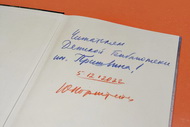 Читателям
Детской библиотеки
им. Пришвина!
5.12.2022